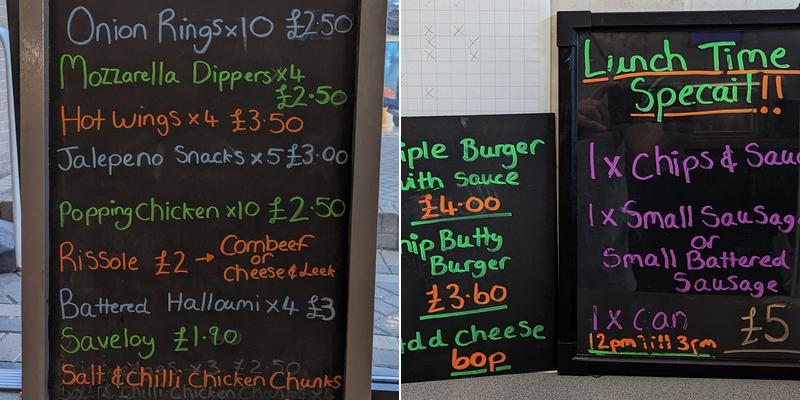 Onion Rings x10 £2.50
Mozzarella Dippers x4
£2.50
Hot wings x4 £3.50
Jalepeno Snacks x5 £3.00
Popping Chicken x10 £2.50
Rissole £2 → Cornbeef
or
Cheese & Leek
Battered Halloumi x4 £3
Saveloy £1.90
Salt & Chilli Chicken Chunks
iple Burger
with Sauce
£4.00
hip Butty
Burger
£3.60
dd cheese
60p
Lunch Time
Specail!!
1x Chips & Sauc
1x Small Sausag
or
Small Battered
Sausage
1x Can
£5
12pm till 3pm